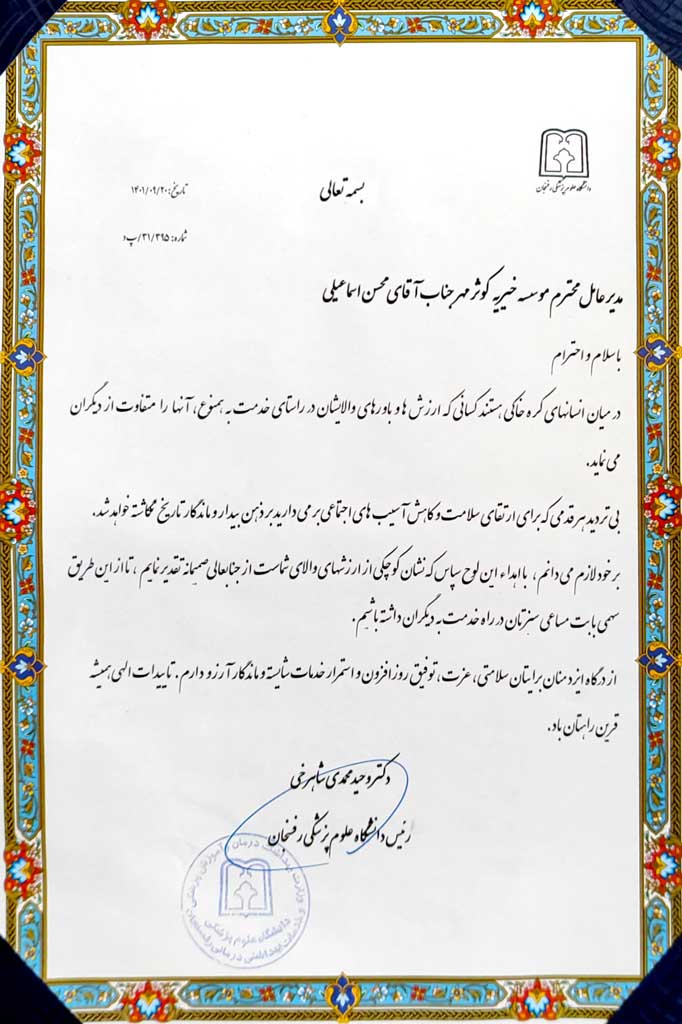 دانشگاه علوم پزشکی رفسنجان
بسمه تعالی
تاریخ: ۱۴۰۱/۰۹/۲۰
شماره: ۳۱/۳۹۵/پ د
مدیر عامل محترم موسسه خیریه کوثر مهر جناب آقای محسن اسماعیلی
با سلام و احترام
در میان انسانهای کره خاکی هستند کسانی که ارزش ها و باورهای والایشان در راستای خدمت به همنوع، آنها را متفاوت از دیگران
می نماید.
بی تردید هر قدمی که برای ارتقای سلامت و کاهش آسیب های اجتماعی بر می دارید بر ذهن بیدار و ماندگار تاریخ نگاشته خواهد شد.
بر خود لازم می دانم ، با اهداء این لوح سپاس که نشان کوچکی از ارزشهای والای شماست از جنابعالی صمیمانه تقدیر نمایم ، تا از این طریق
سهمی بابت مساعی سبزتان در راه خدمت به دیگران داشته باشیم.
از درگاه ایزد منان برایتان سلامتی، عزت، توفیق روز افزون و استمرار خدمات شایسته و ماندگار آرزو دارم. تاییدات الهی همیشه
قرین راهتان باد.
دکتر وحید محمدی شاهرخی
رئیس دانشگاه علوم پزشکی رفسنجان
وزارت بهداشت درمان و آموزش پزشکی
دانشگاه علوم پزشکی
و خدمات بهداشتی درمانی رفسنجان